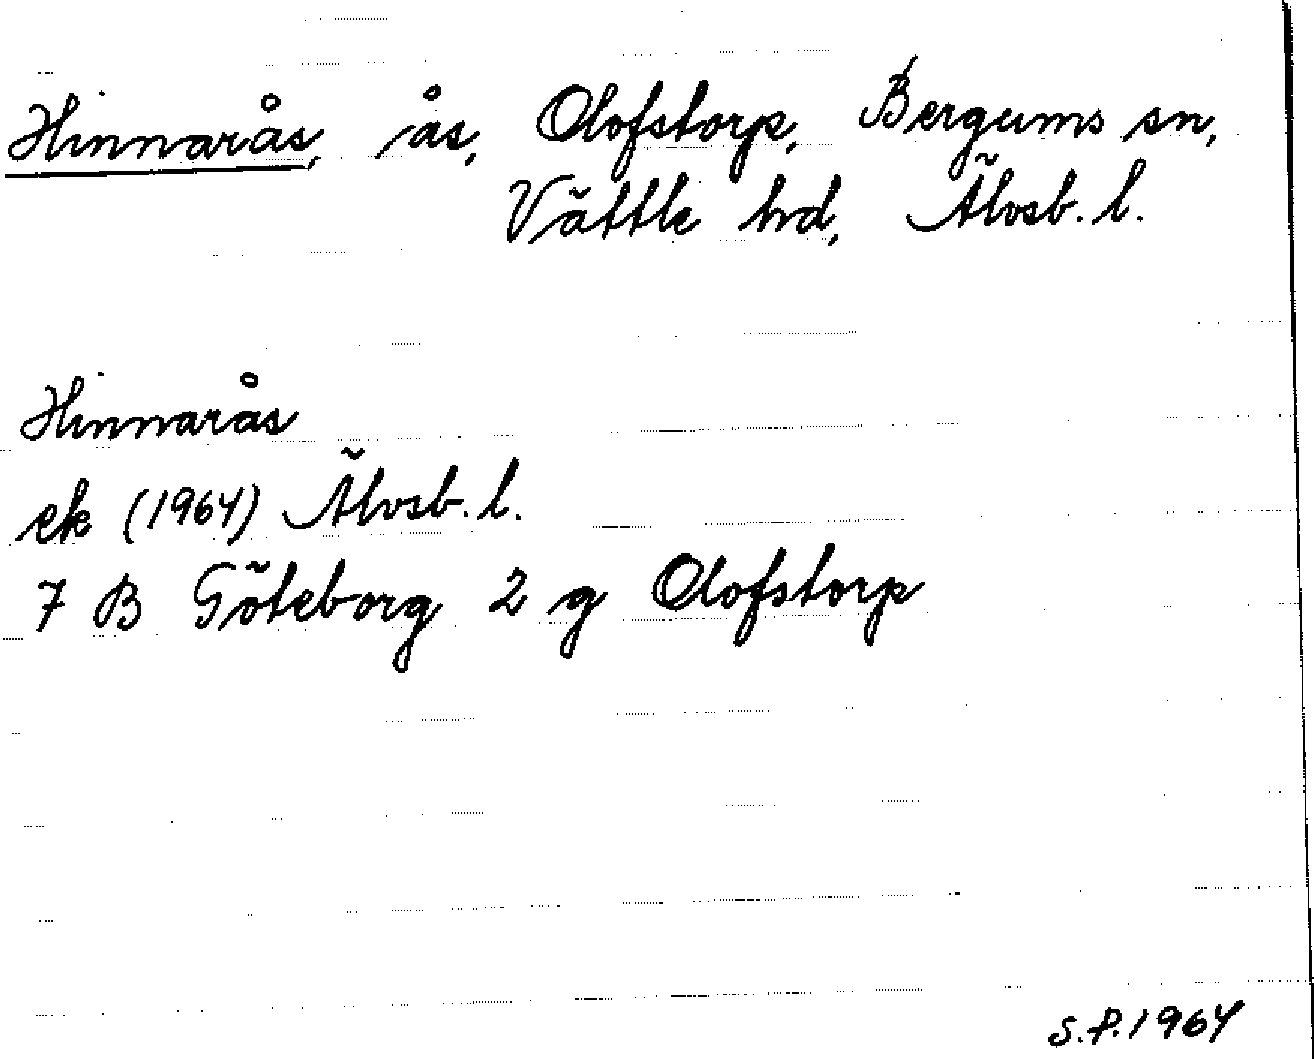 Hinnarås, ås, Olofstorp, Bergums sn,
Vättle hd, Älvsb. l.
Hinnarås
ek (1964) Älvsb. l.
7 B Göteborg 2 g Olofstorp
S.P. 1964